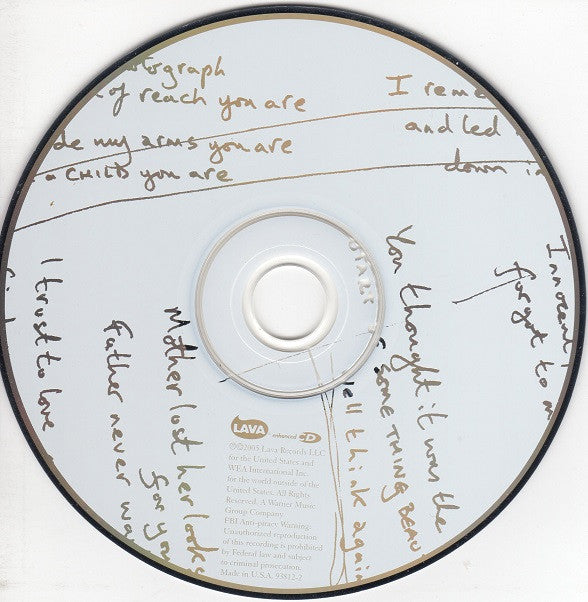 graph
of reach you are
de my arms you are
a CHILD you are
I reme
and led
down in
Innocent
forgot to m
You thought it was the
SOMETHING BEAU
ell think again
I trust to love
Mother lost her looks
for you
Father never wa
LAVA
enhanced CD
℗©2005 Lava Records LLC
for the United States and
WEA International Inc.
for the world outside of the
United States. All Rights
Reserved. A Warner Music
Group Company.
FBI Anti-piracy Warning:
Unauthorized reproduction
of this recording is prohibited
by Federal law and subject
to criminal prosecution.
Made in U.S.A. 93812-2